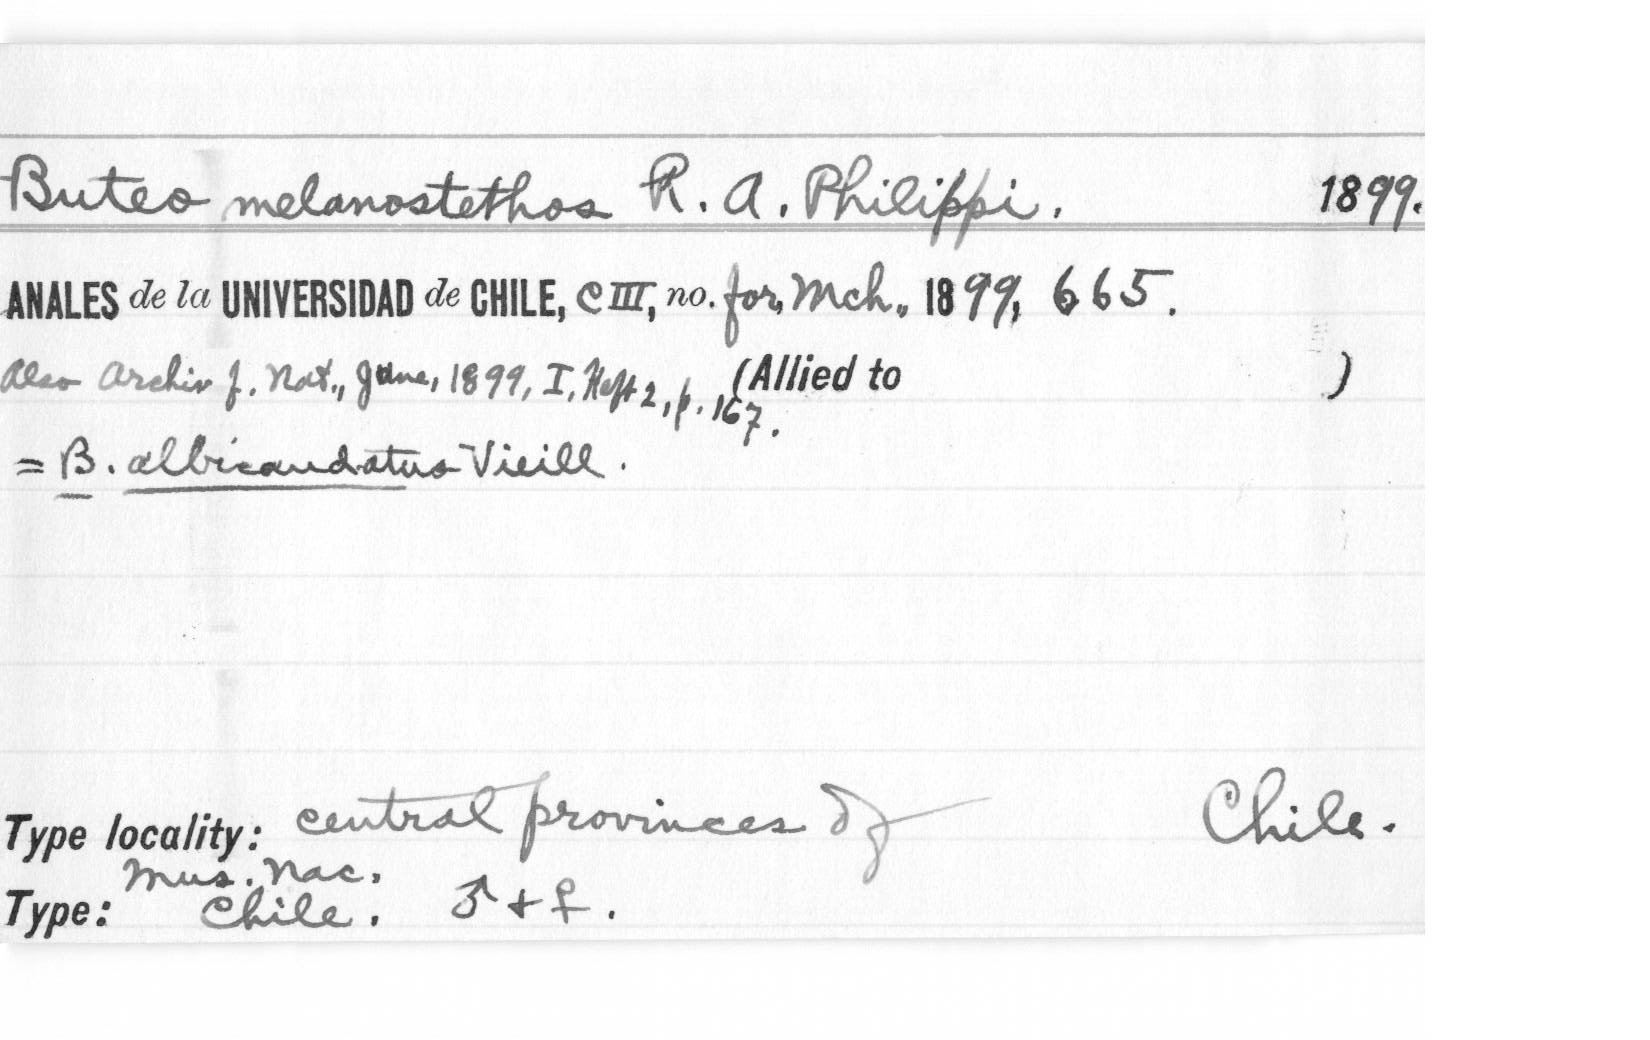 Buteo melanostethos R. A. Philippi. 1899.
ANALES de la UNIVERSIDAD de CHILE, CIII, no. for, Mch., 1899, 665.
Also Archiv f. Nat., June, 1899, I, Heft 2, p. 167. (Allied to )
= B. albicaudatus Vieill.
Type locality: central provinces of Chile.
Mus. Nac.
Type: Chile. ♂ + ♀.